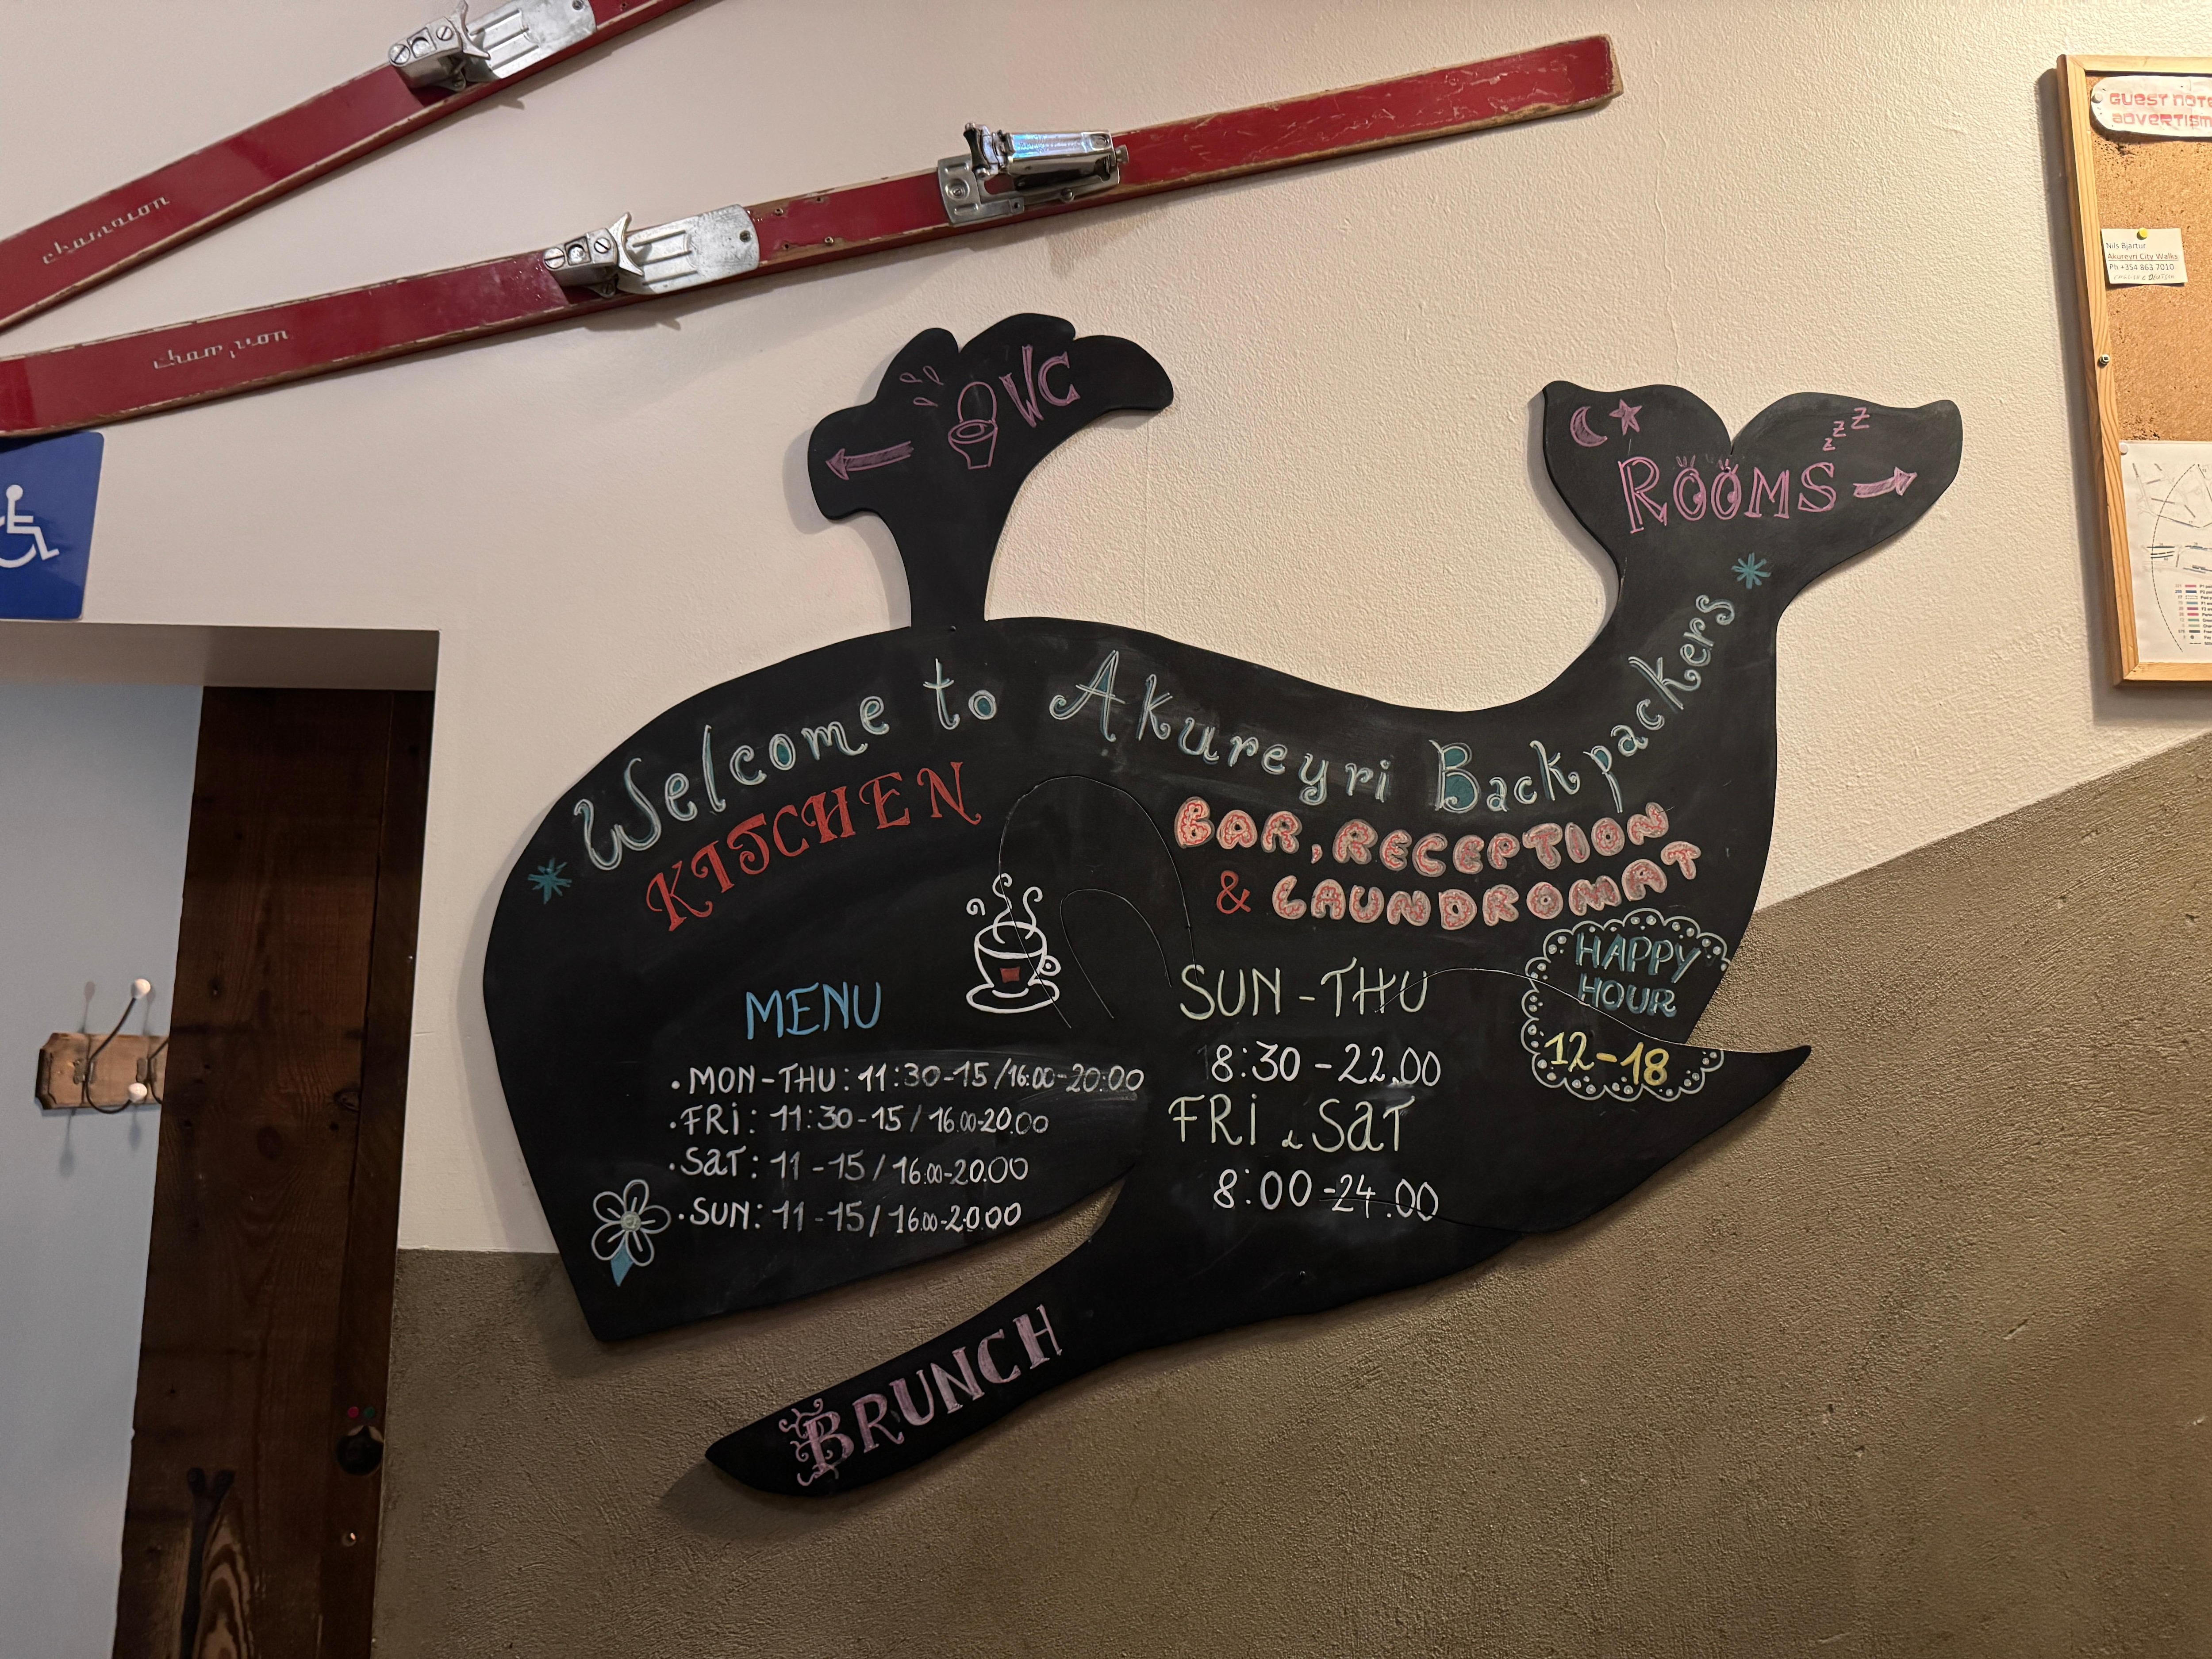 champion
champion
GUEST NOTE
ADVERTISM
Nils Bjartur
Akureyri City Walks
Ph +354 863 7010
WC
z z z
ROOMS
Welcome to Akureyri Backpackers
KITCHEN
BAR, RECEPTION
& LAUNDROMAT
HAPPY
HOUR
12-18
MENU
• MON-THU: 11:30-15/16:00-20:00
• FRI: 11:30-15/16.00-20.00
• SAT: 11-15/16.00-20.00
• SUN: 11-15/16.00-20.00
SUN-THU
8:30-22.00
FRI & SAT
8:00-24.00
BRUNCH